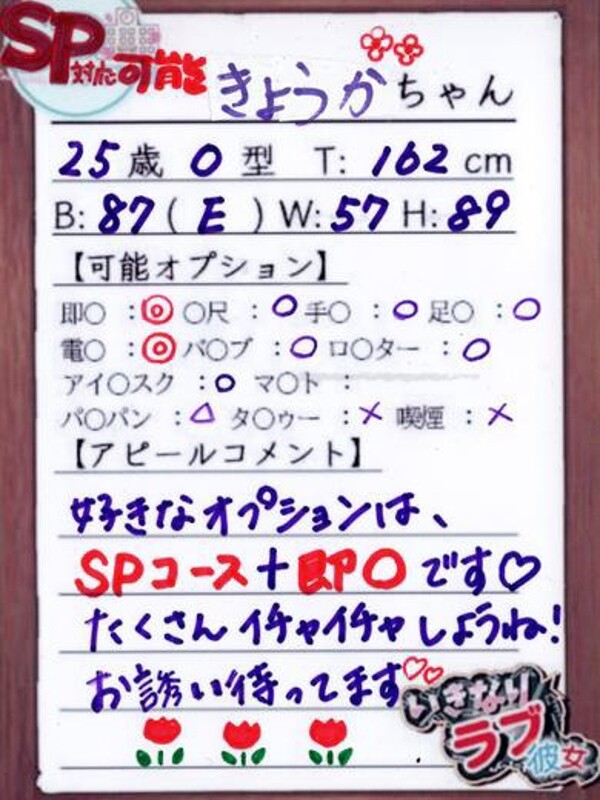 SP対応可能
きょうかちゃん
25歳 O型 T: 162cm
B: 87(E) W: 57 H: 89
【可能オプション】
即〇 :◎ 〇尺 :○ 手〇 :○ 足〇 :○
電〇 :◎ バ〇ブ :○ ロ〇ター :○
アイ〇スク :○ マ〇ト :
パ〇パン :△ タ〇ゥー :× 喫煙 :×
【アピールコメント】
好きなオプションは、
SPコース+即〇です♡
たくさんイチャイチャしようね!
お誘い待ってます♡♡
いきなり
ラブ彼女